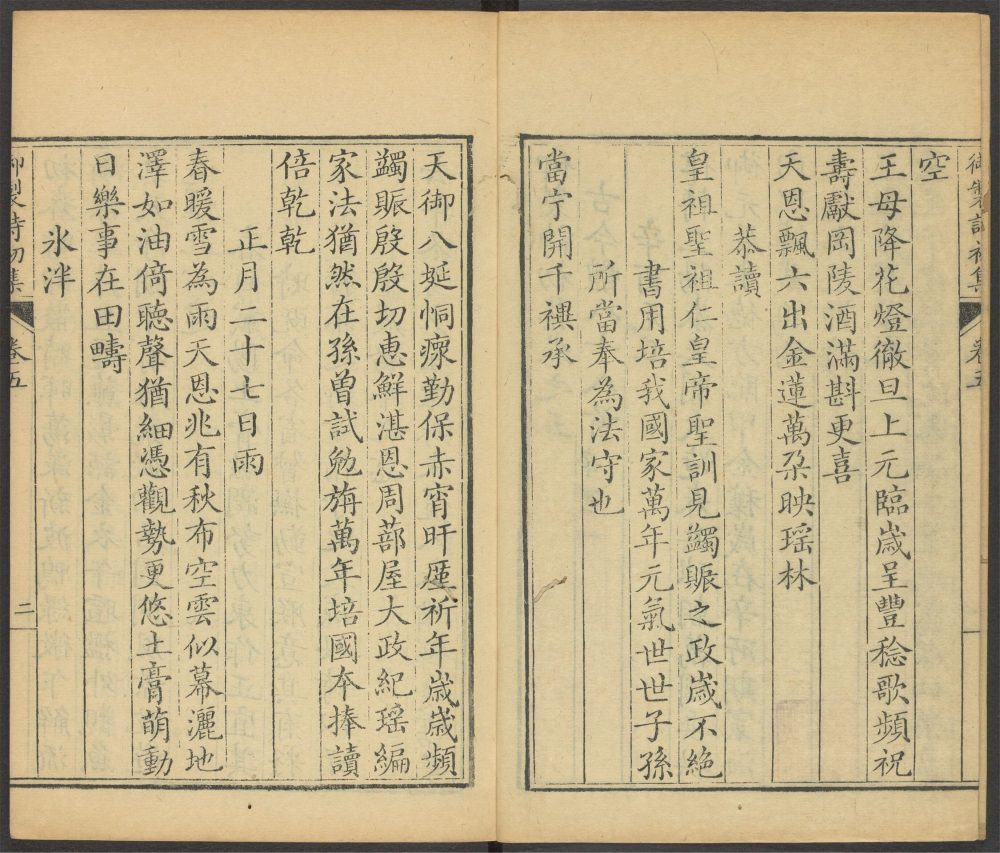 御製詩初集
卷五
一
空
王母降花燈徹旦上元臨歲呈豐稔歌頻祝
壽獻岡陵酒滿斟更喜
天恩飄六出金蓮萬朶映瑶林
恭讀
皇祖聖祖仁皇帝聖訓見蠲賑之政歲不絕
書用培我國家萬年元氣世世子孫
所當奉為法守也
當宁開千禩承
天御八埏恫瘝勤保赤宵旰廑祈年歲歲頻
蠲賑殷殷切惠鮮湛恩周蔀屋大政紀瑶編
家法猶然在孫曾試勉旃萬年培國本捧讀
倍乾乾
正月二十七日雨
春暖雪為雨天恩兆有秋布空雲似幕灑地
澤如油倚聽聲猶細憑觀勢更悠土膏萌動
日樂事在田疇
氷泮
御製詩初集
卷五
二